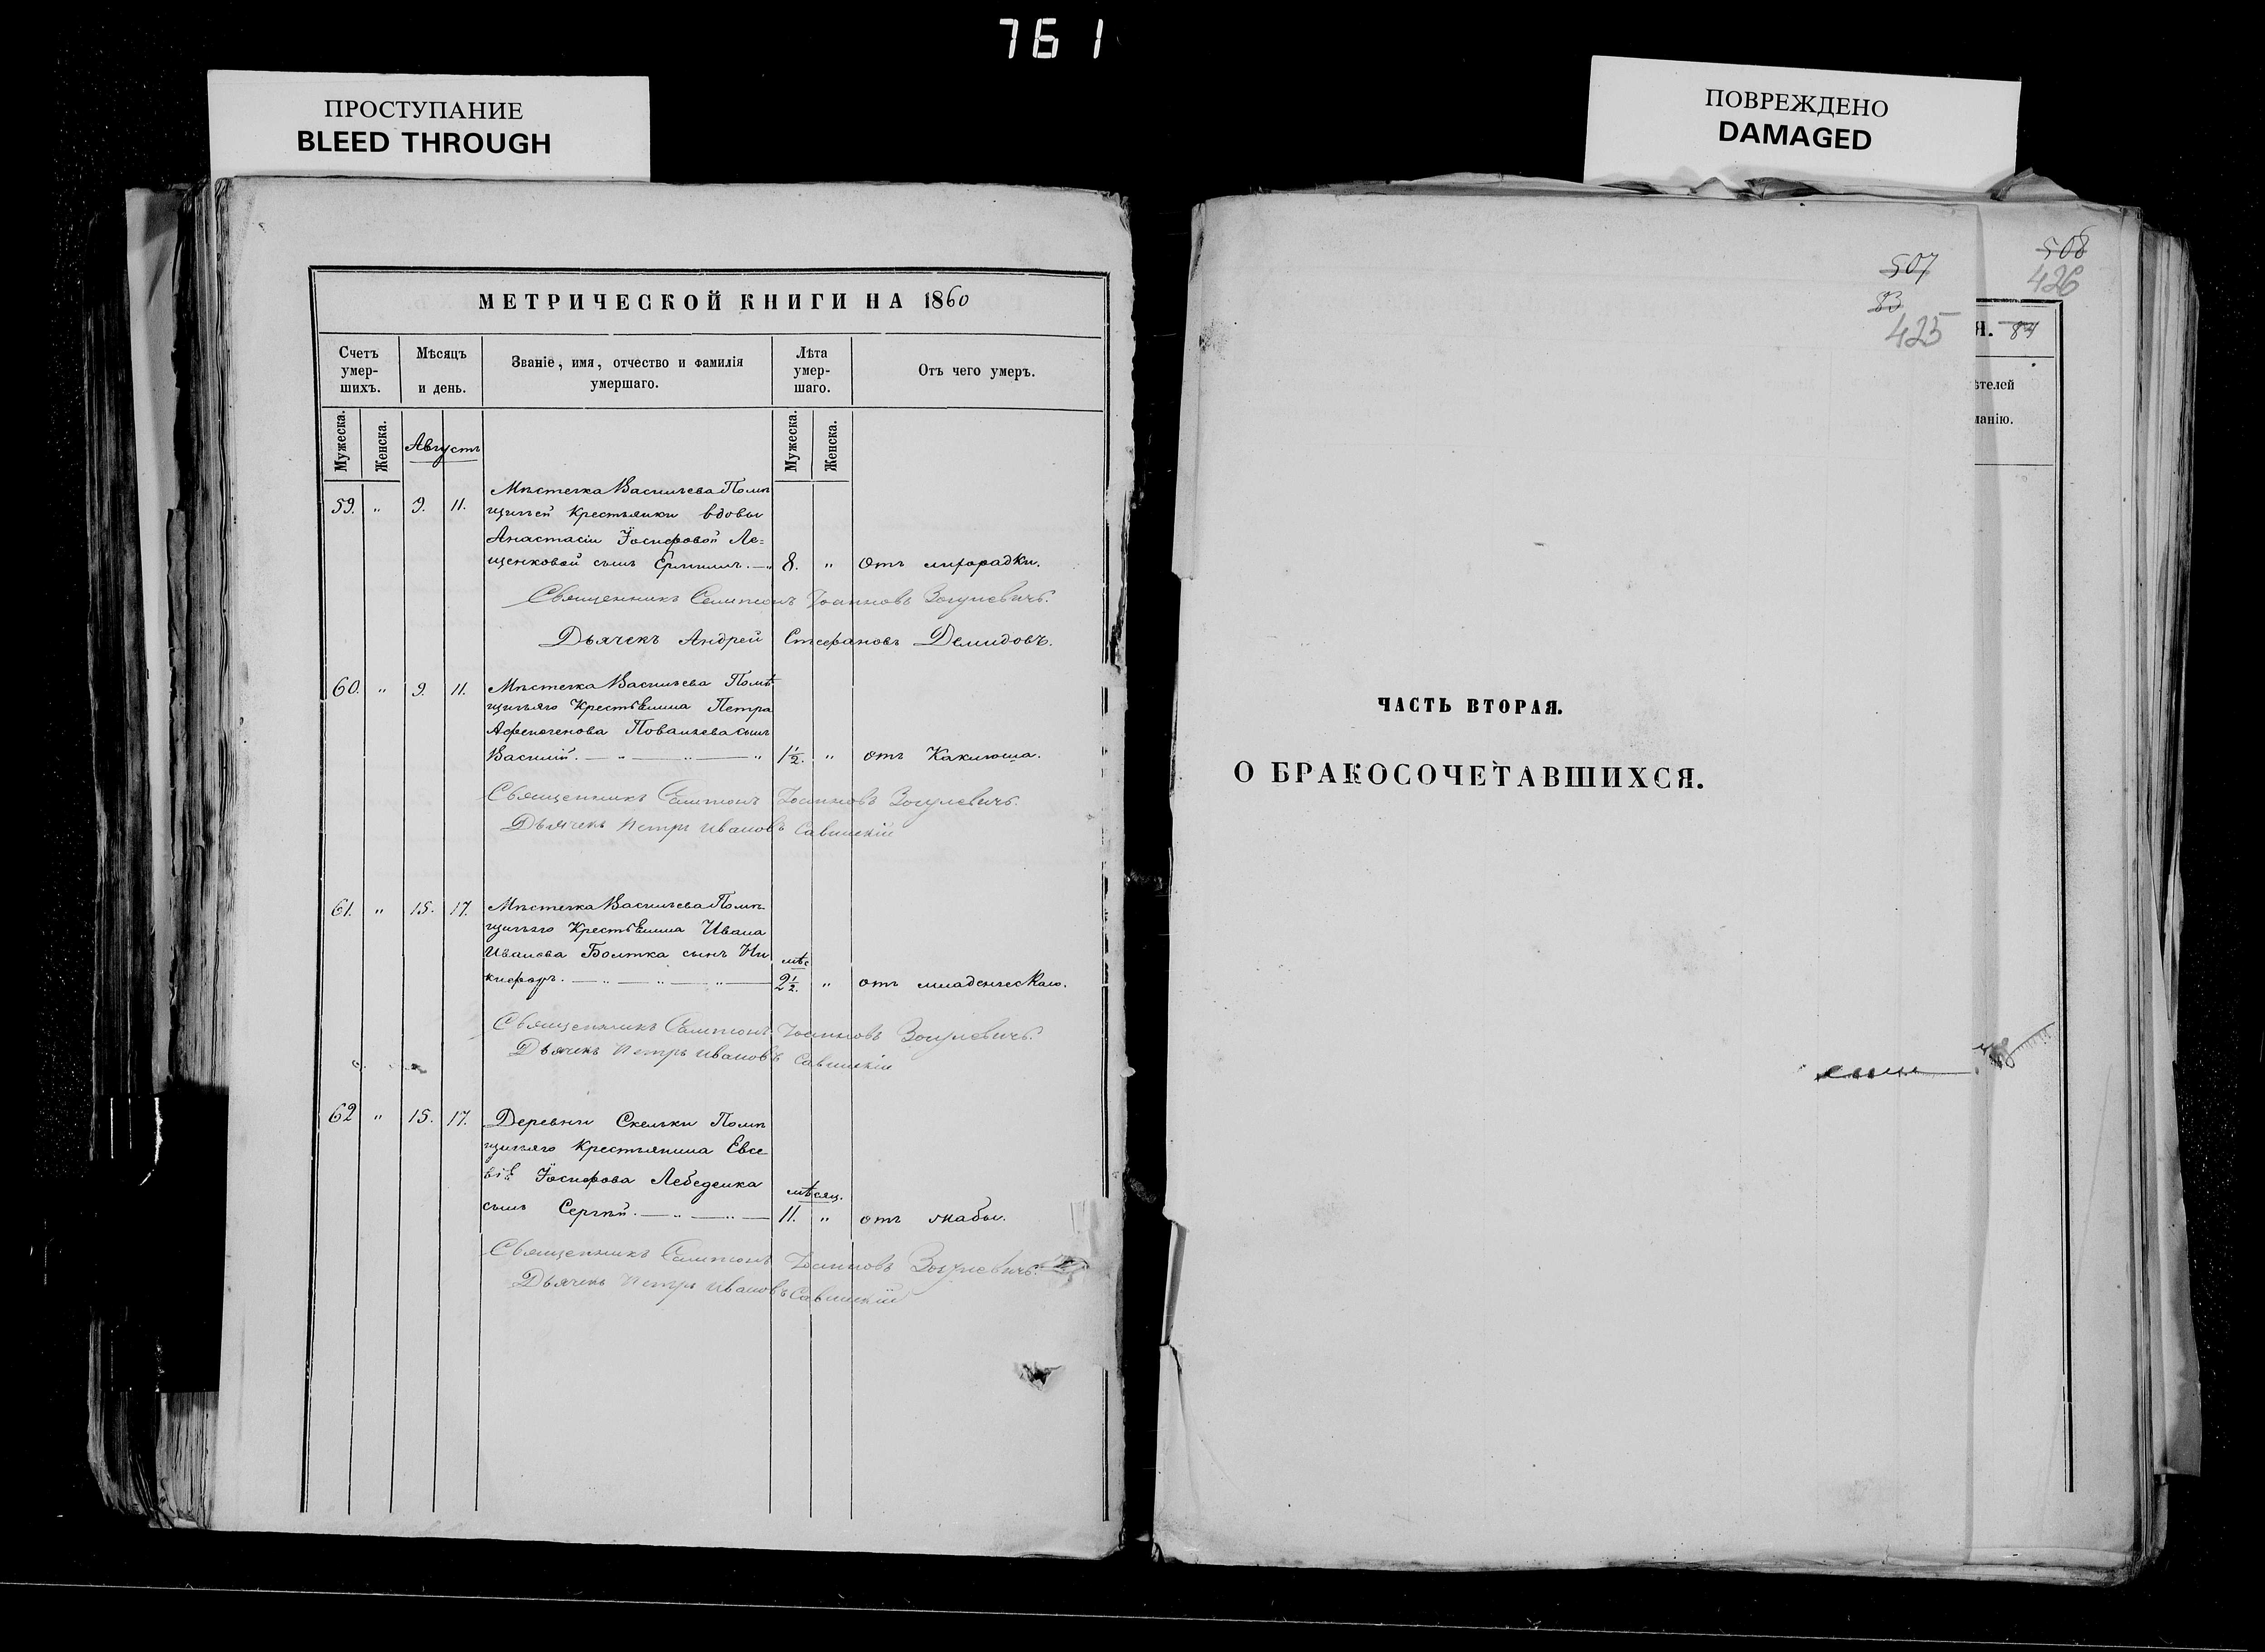 761
ПРОСТУПАНИЕ
BLEED THROUGH
ПОВРЕЖДЕНО
DAMAGED
МЕТРИЧЕСКОЙ КНИГИ НА 1860
Счетъ умер-шихъ.
Мѣсяцъ и день.
Званіе, имя, отчество и фамилія умершаго.
Лѣта умер-шаго.
Отъ чего умеръ.
Мужеска.
Женска.
Августъ
Мужеска.
Женска.
59. " 9. 11. Мѣстечка Васильева Помѣ
щичьей Крестьянки вдовы
Анастасіи Іосифовой Ле=
щенковой сынъ 8. " Отъ лихорадки.
Священникъ Сампсонъ Іоанновъ
Дьячекъ Андрей Стефановъ Демидовъ.
60. " 9. 11. Мѣстечка Васильева Помѣ
щичьяго Крестьянина Петра
Афиногенова сынъ
Василій. 1½. " отъ Каклюша.
Священникъ Сампсонъ Іоанновъ
Дьячекъ Петръ Ивановъ Савинскій
61. " 15. 17. Мѣстечка Васильева Помѣ
щичьяго Крестьянина Ивана
Иванова Болтка сынъ Ни
кифоръ. мѣс 2½. " отъ младенческаго.
Священникъ Сампсонъ Іоанновъ
Дьячекъ Петръ Ивановъ Савинскій
62 " 15. 17. Деревни Скельки Помѣ
щичьяго Крестьянина Евсе
Іосифова Лебеденка
сынъ Сергѣй. мѣсяц. 11. " отъ жабы.
Священникъ Сампсонъ Іоанновъ
Дьячекъ Петръ Ивановъ Савинскій
507
83
425
508
426
Я. 84
ѣтелей
ланію.
ЧАСТЬ ВТОРАЯ.
О БРАКОСОЧЕТАВШИХСЯ.